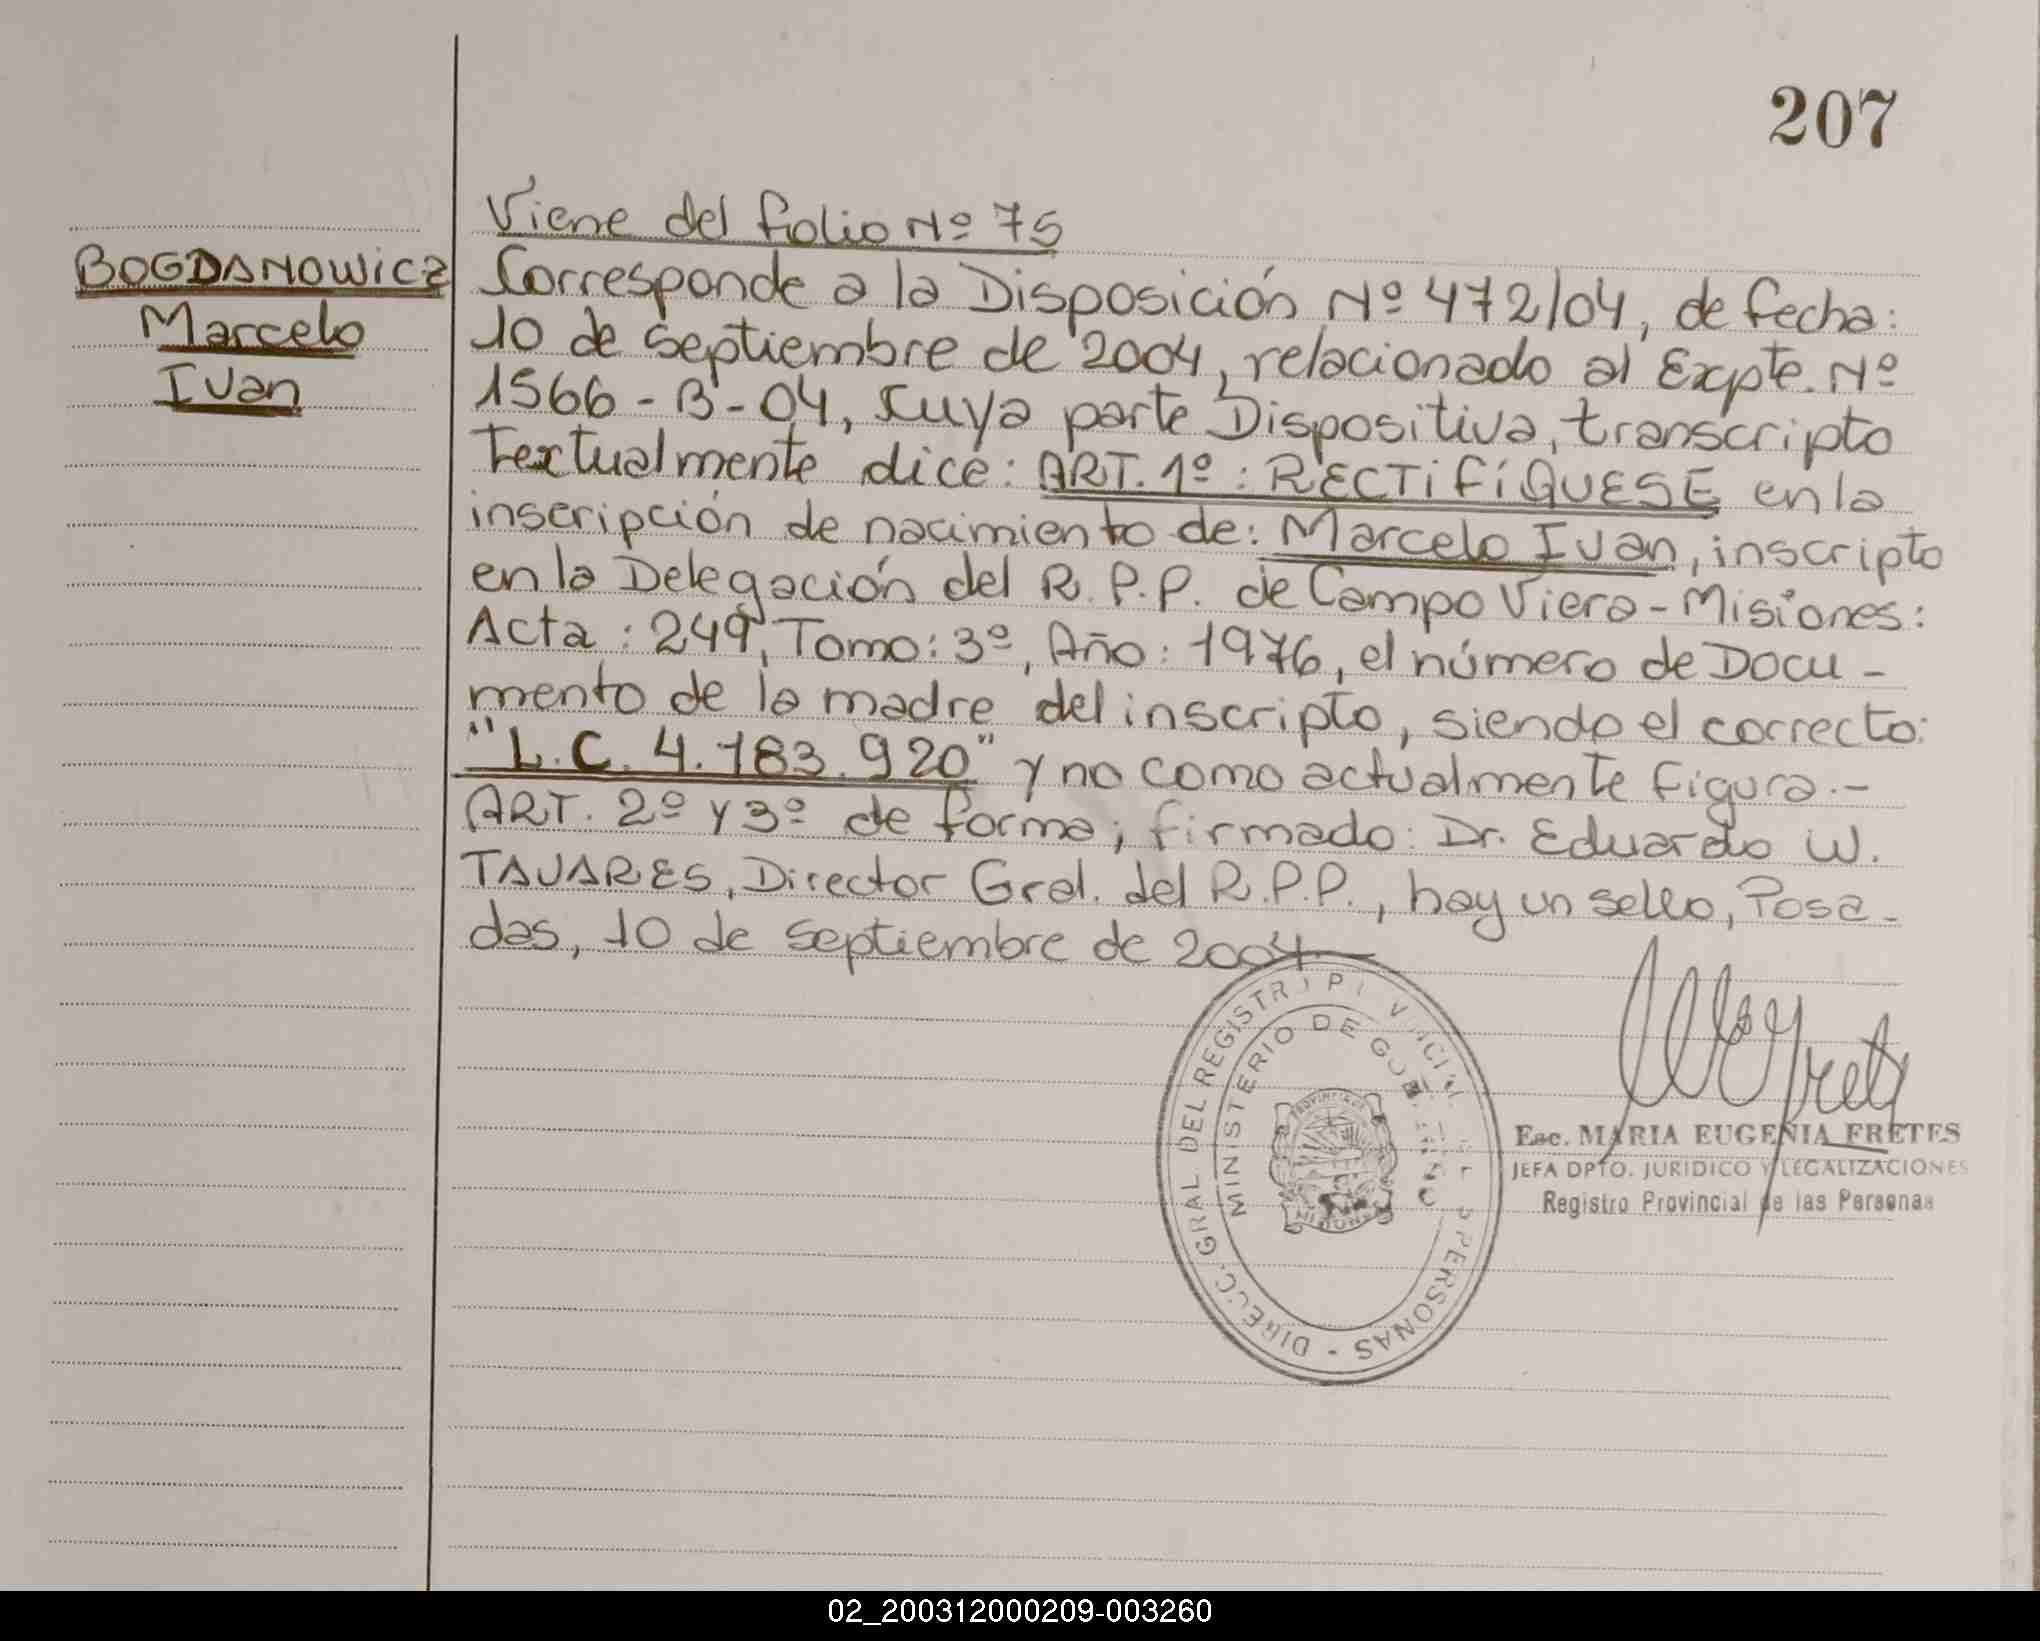 207
BOGDANOWICZ
Marcelo
Ivan
Viene del folio Nº 75
Corresponde a la Disposición Nº 472/04, de fecha:
10 de septiembre de 2004, relacionado al Expte. Nº
1566-B-04, cuya parte Dispositiva, transcripto
textualmente dice: ART. 1º: RECTIFÍQUESE en la
inscripción de nacimiento de: Marcelo Ivan, inscripto
en la Delegación del R.P.P. de Campo Viera-Misiones:
Acta: 249, Tomo: 3º, Año: 1976, el número de Docu-
mento de la madre del inscripto, siendo el correcto:
"L.C. 4.183.920" y no como actualmente figura.-
ART. 2º y 3º de forma; firmado: Dr. Eduardo W.
TAVARES, Director Gral. del R.P.P., hay un sello, Posa-
das, 10 de septiembre de 2004.-
DIRECC. GRAL DEL REGISTR PERSONAS -
MINISTERIO DE
MISIONES
Esc. MARIA EUGENIA FRETES
JEFA DPTO. JURIDICO Y LEGALIZACIONES
Registro Provincial de las Personas
02_200312000209-003260